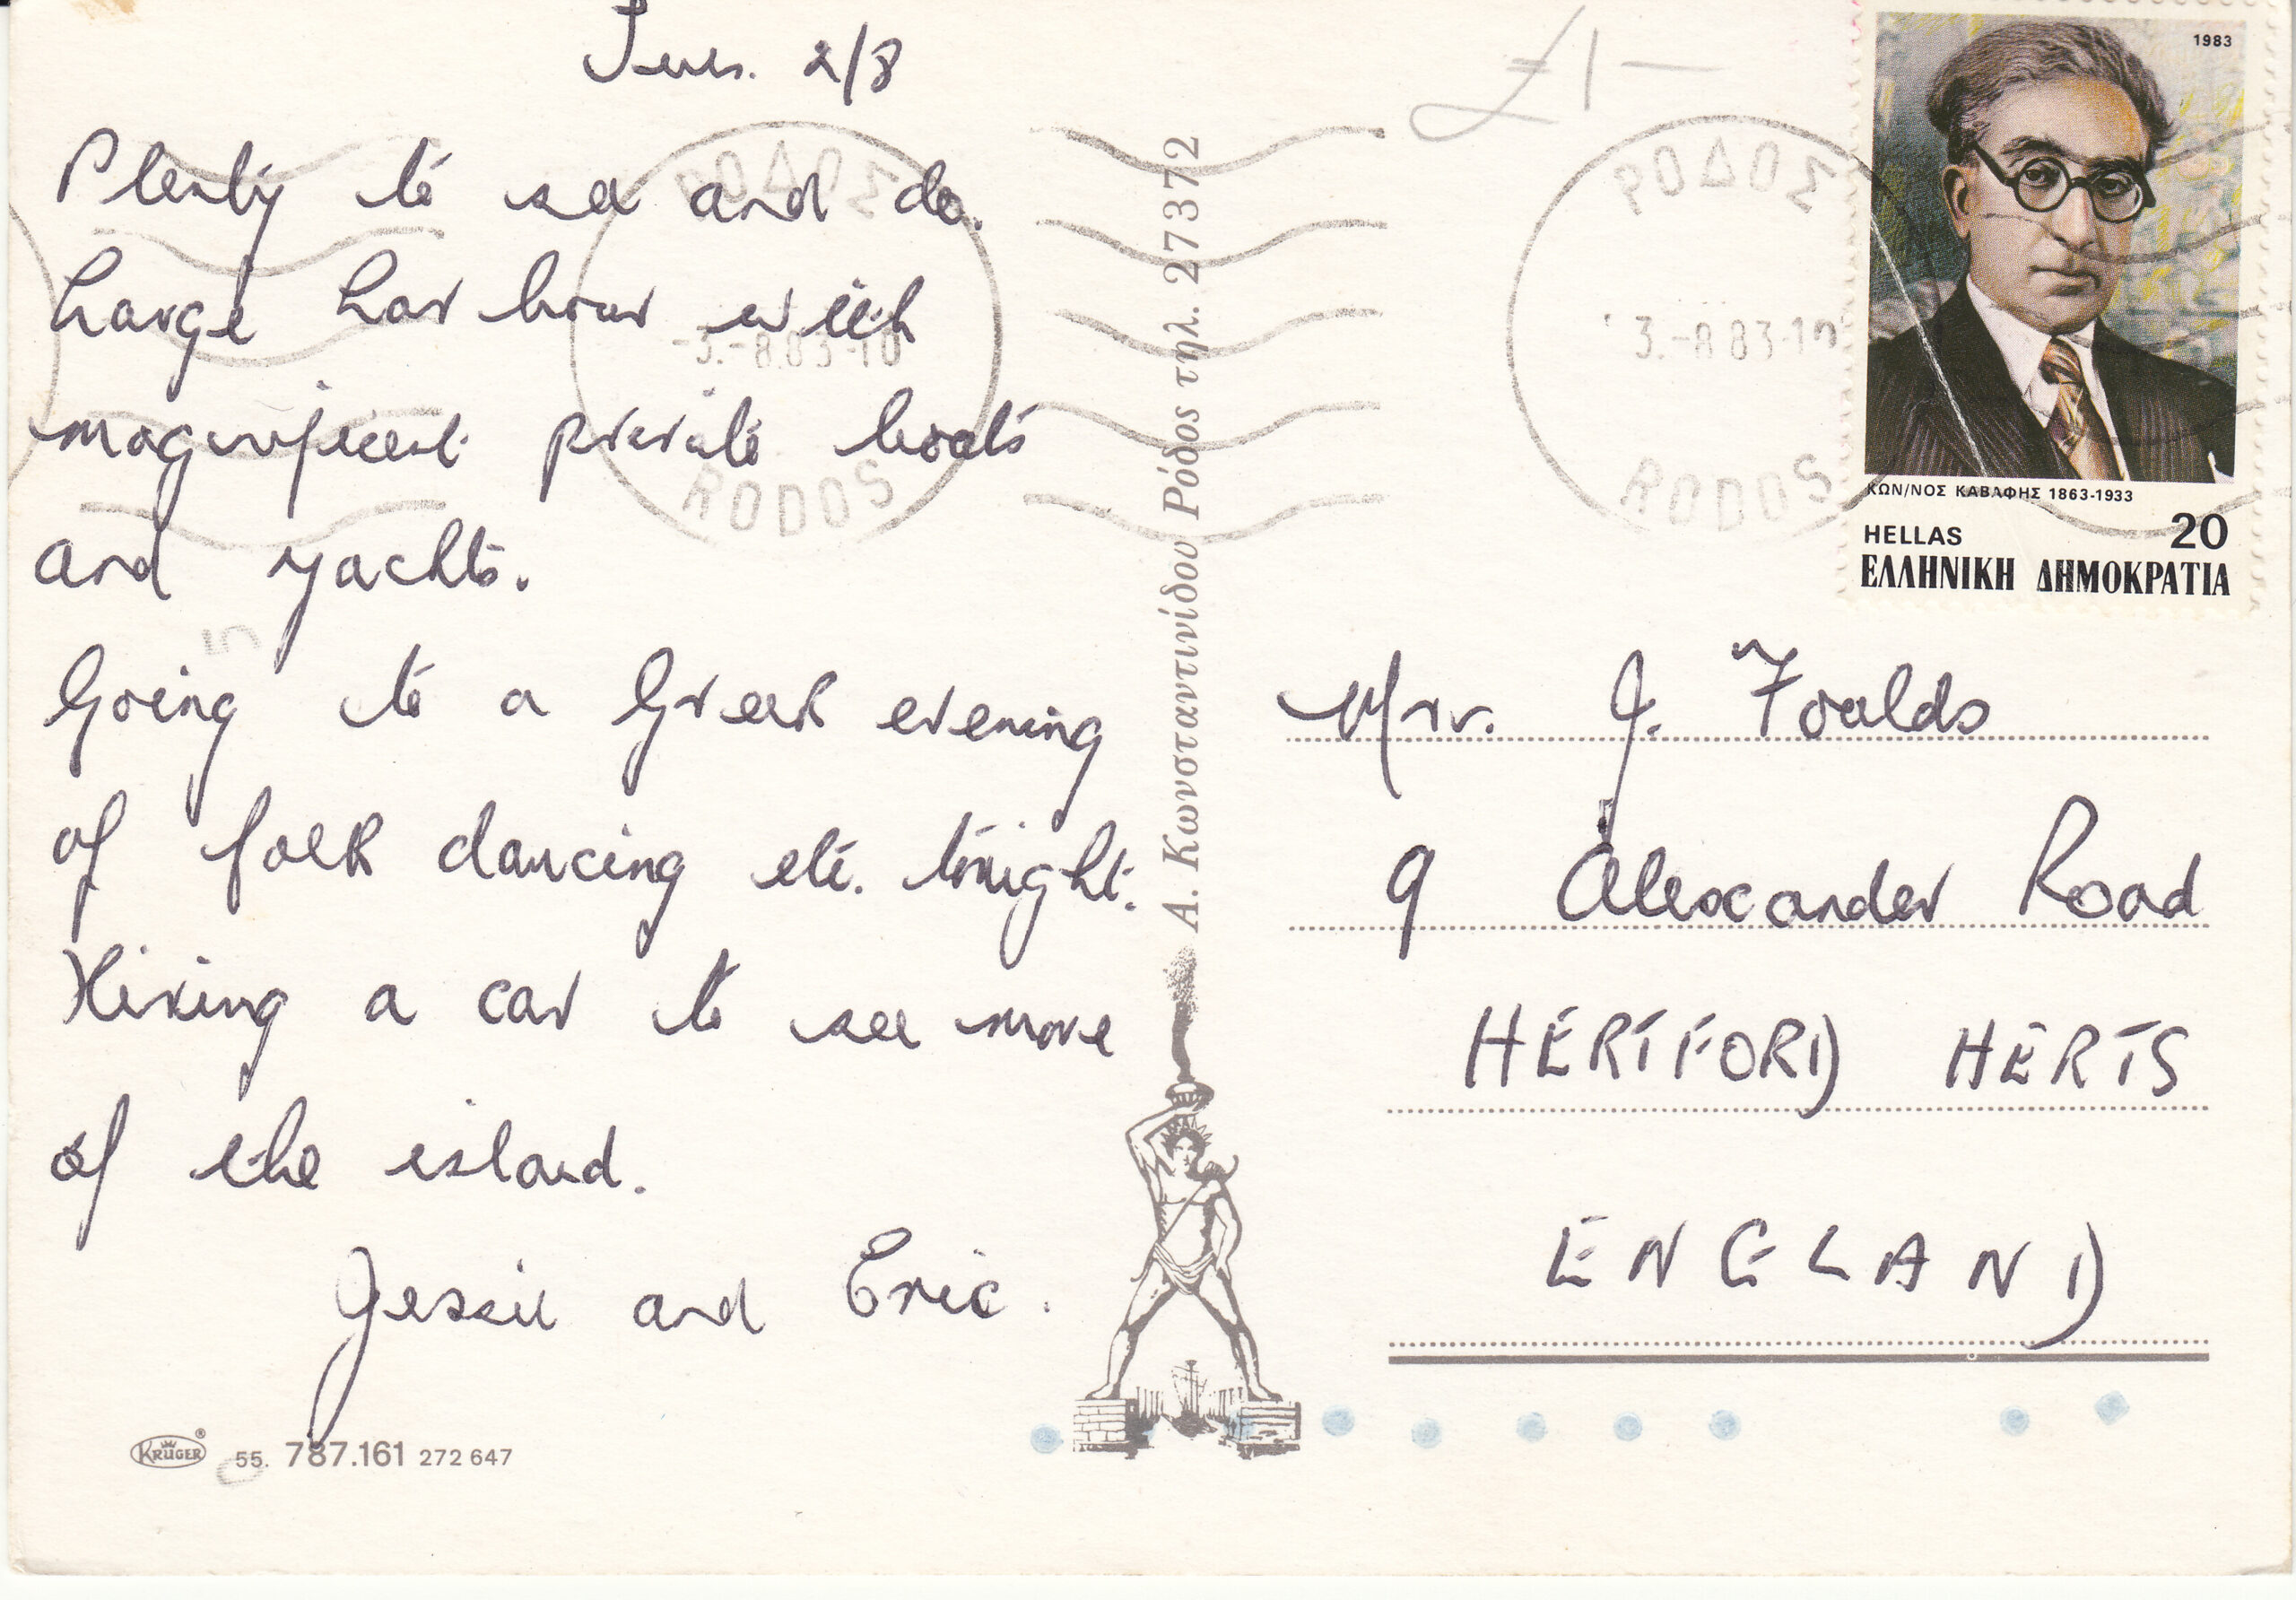 Tues. 2/8
Plenty to see and do.
Large harbour with
magnificent private boats
and yachts.
Going to a Greek evening
of folk dancing etc. tonight.
Hiring a car to see more
of the island.
Jessie and Eric.
KRÜGER® 55. 787.161 272 647
ΡΟΔΟΣ
-3.-8.83-10
RODOS
Α. Κωνσταντινίδου Ρόδος τηλ. 27372
£1—
ΡΟΔΟΣ
3.-8 83-10
RODOS
1983
ΚΩΝ/ΝΟΣ ΚΑΒΑΦΗΣ 1863-1933
HELLAS 20
ΕΛΛΗΝΙΚΗ ΔΗΜΟΚΡΑΤΙΑ
Mrs. J. Foulds
9 Alexander Road
HERTFORD HERTS
ENGLAND